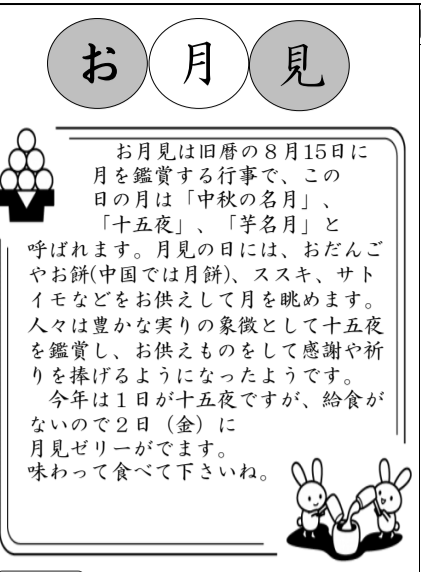 お月見
お月見は旧暦の８月15日に
月を鑑賞する行事で、この
日の月は「中秋の名月」、
「十五夜」、「芋名月」と
呼ばれます。月見の日には、おだんご
やお餅(中国では月餅)、ススキ、サト
イモなどをお供えして月を眺めます。
人々は豊かな実りの象徴として十五夜
を鑑賞し、お供えものをして感謝や祈
りを捧げるようになったようです。
今年は１日が十五夜ですが、給食が
ないので２日（金）に
月見ゼリーがでます。
味わって食べて下さいね。